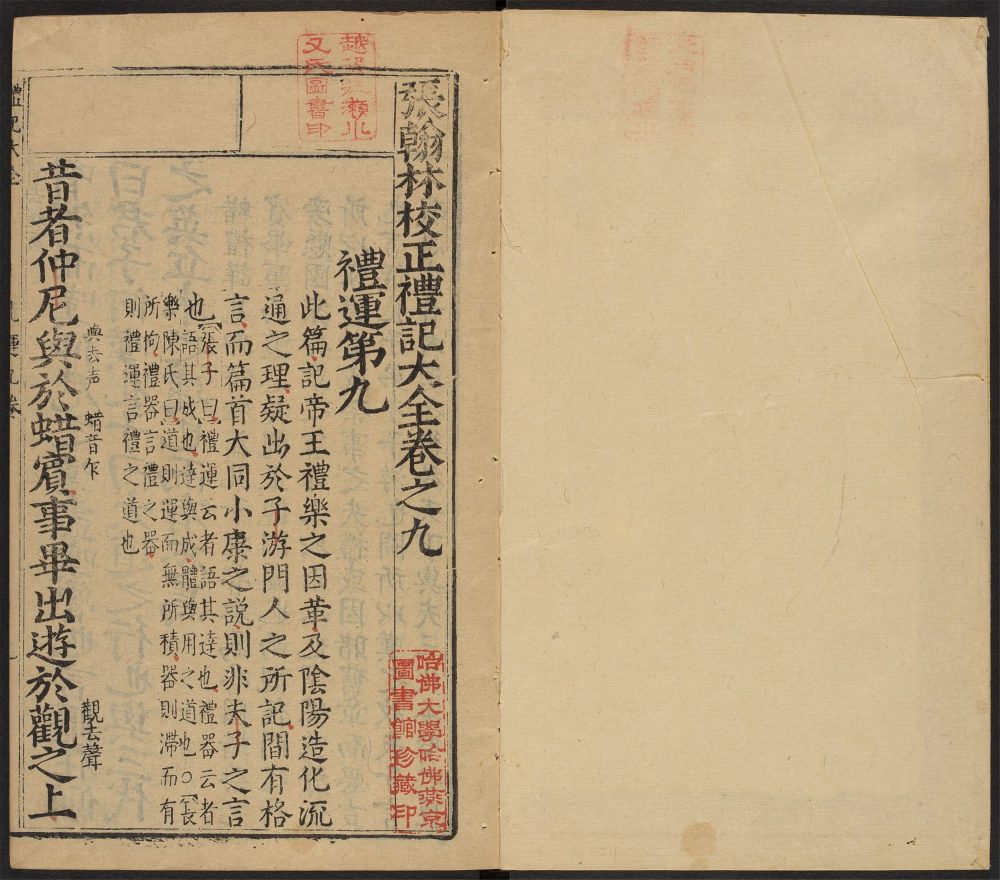 張翰林校正禮記大全卷之九
禮運第九
此篇記帝王禮樂之因革及陰陽造化流
通之理疑出於子游門人之所記間有格
言而篇首大同小康之說則非夫子之言
也張子曰禮運云者語其達也禮器云者
語其成也達與成體與用之道也○長
樂陳氏曰道則運而無所積器則滯而有
所拘禮器言禮之器
則禮運言禮之道也
與去声 蜡音乍 觀去聲
昔者仲尼與於蜡賓事畢出遊於觀之上
哈佛大學哈佛燕京
圖書館珍藏印
氏圖書印